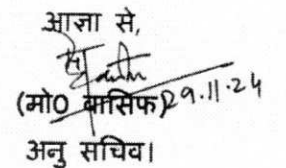 आज्ञा से,
(मो0 वासिफ) 29.11.24
अनु सचिव।